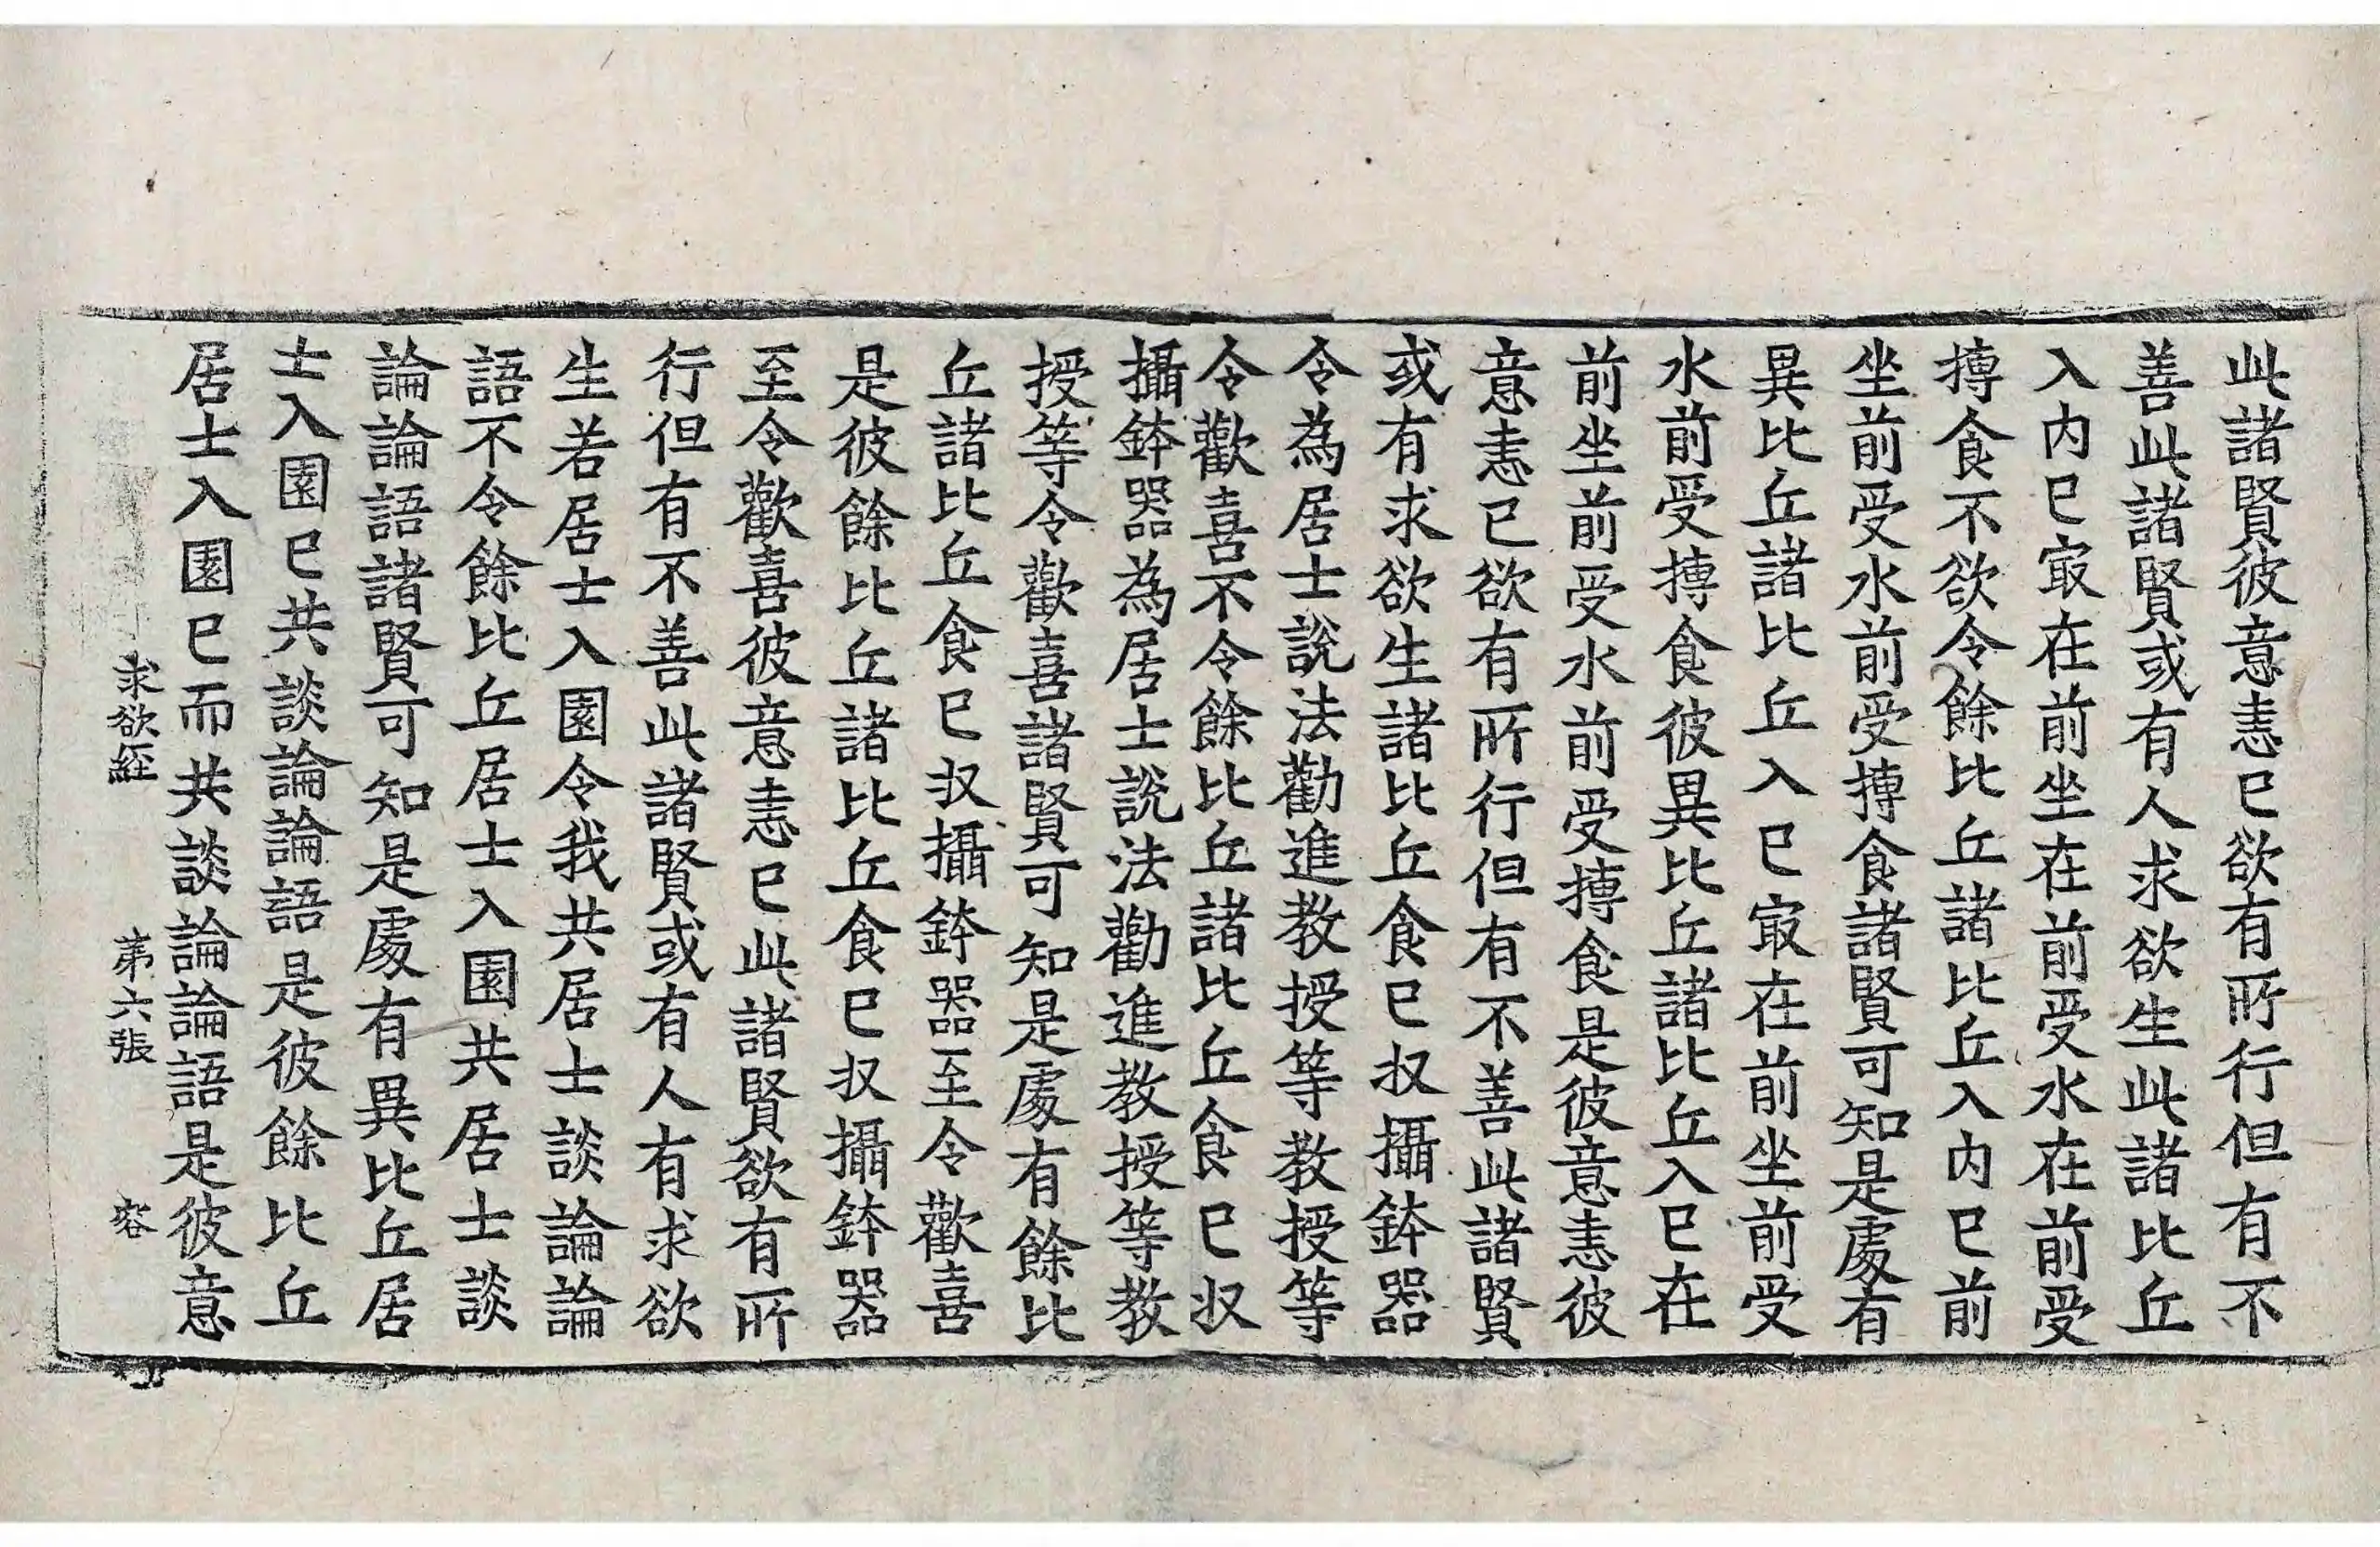 此諸賢彼意恚已欲有所行但有不
善此諸賢或有人求欲生此諸比丘
入内已㝡在前坐在前受水在前受
摶食不欲令餘比丘諸比丘入内已前
坐前受水前受摶食諸賢可知是處有
異比丘諸比丘入已㝡在前坐前受
水前受摶食彼異比丘諸比丘入已在
前坐前受水前受摶食是彼意恚彼
意恚已欲有所行但有不善此諸賢
或有求欲生諸比丘食已収攝鉢器
令為居士說法勸進教授等教授等
令歡喜不令餘比丘諸比丘食已収
攝鉢器為居士說法勸進教授等教
授等令歡喜諸賢可知是處有餘比
丘諸比丘食已収攝鉢器至令歡喜
是彼餘比丘諸比丘食已収攝鉢器
至令歡喜彼意恚已此諸賢欲有所
行但有不善此諸賢或有人有求欲
生若居士入園令我共居士談論論
語不令餘比丘居士入園共居士談
論論語諸賢可知是處有異比丘居
士入園已共談論論語是彼餘比丘
居士入園已而共談論論語是彼意
求欲経 第六張 容